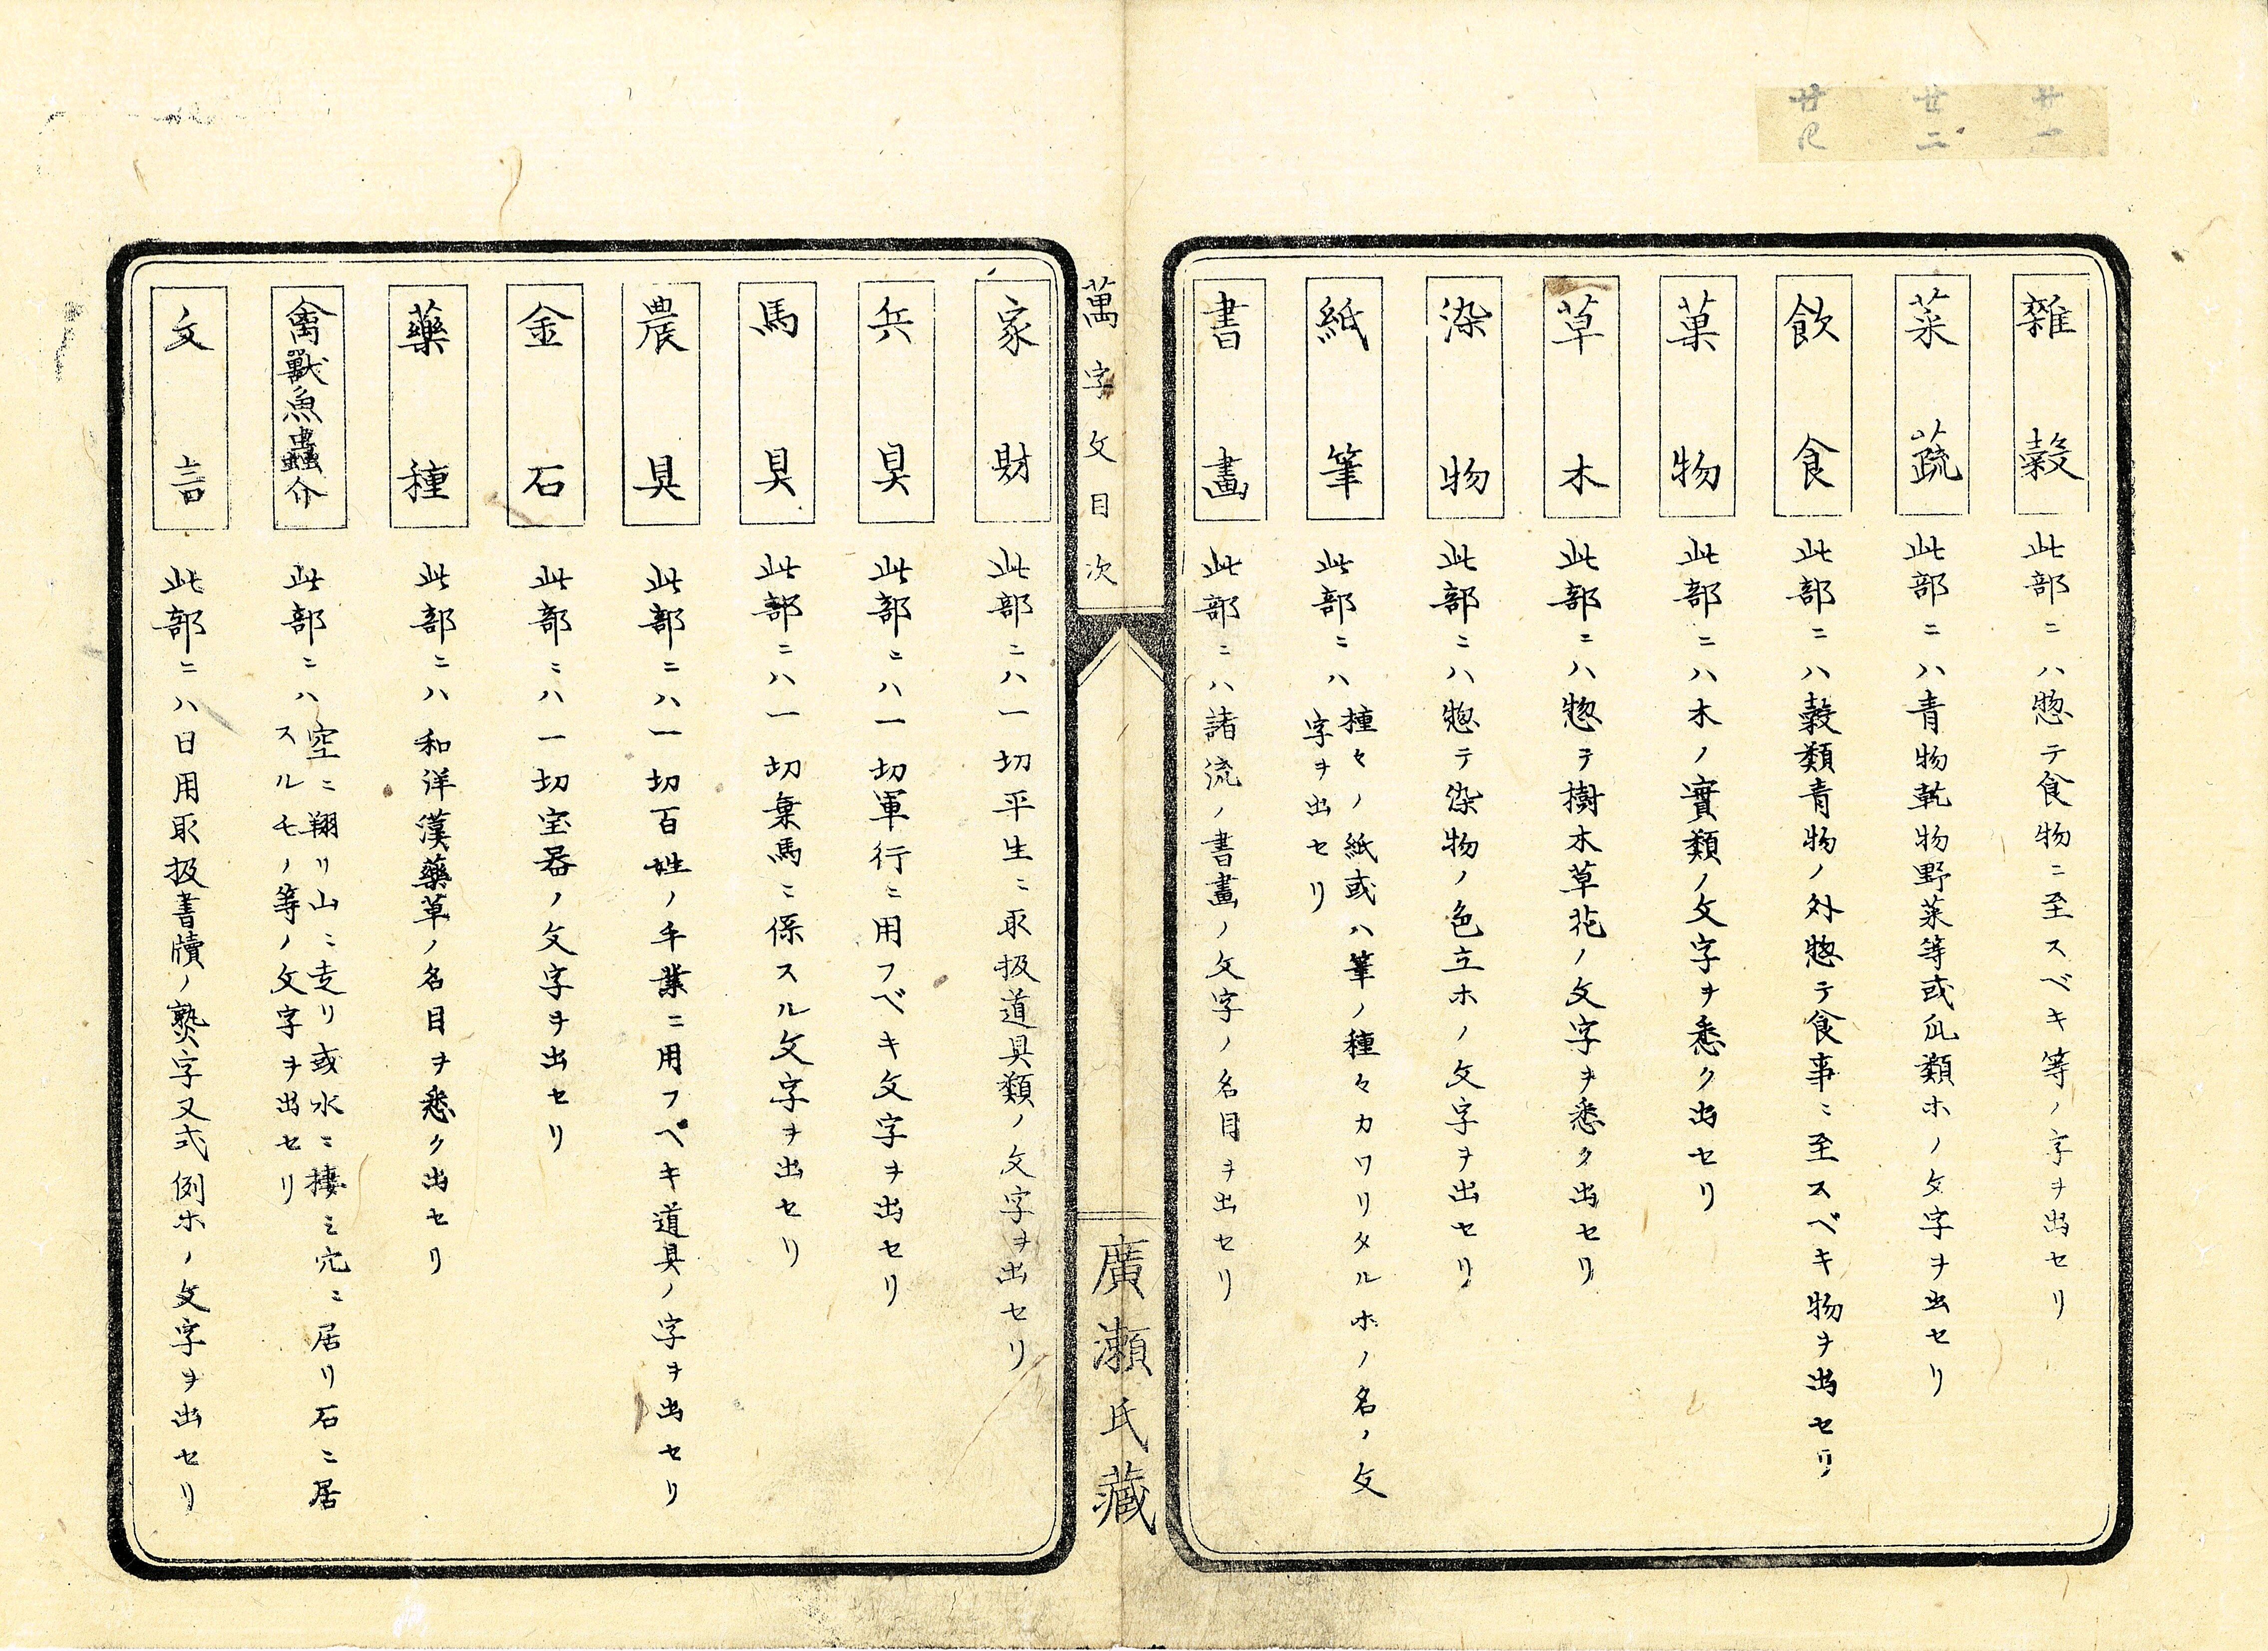 廿一
廿二
廿
雜穀 此部ニハ惣テ食物ニ至スベキ等ノ字ヲ出セリ
菜蔬 此部ニハ青物乾物野菜等或瓜類ホノ文字ヲ出セリ
飲食 此部ニハ穀類青物ノ外惣テ食事ニ至スベキ物ヲ出セリ
菓物 此部ニハ木ノ實類ノ文字ヲ悉ク出セリ
草木 此部ニハ惣テ樹木草花ノ文字ヲ悉ク出セリ
染物 此部ニハ惣テ染物ノ色立ホノ文字ヲ出セリ
紙筆 此部ニハ種々ノ紙或ハ筆ノ種々カワリタルホノ名ノ文
字ヲ出セリ
書畫 此部ニハ諸流ノ書畫ノ文字ノ名目ヲ出セリ
萬字文目次
廣瀬氏藏
家財 此部ニハ一切平生ニ取扱道具類ノ文字ヲ出セリ
兵具 此部ニハ一切軍行ニ用フベキ文字ヲ出セリ
馬具 此部ニハ一切乗馬ニ係スル文字ヲ出セリ
農具 此部ニハ一切百姓ノ手業ニ用フベキ道具ノ字ヲ出セリ
金石 此部ニハ一切宝器ノ文字ヲ出セリ
藥種 此部ニハ和洋漢藥草ノ名目ヲ悉ク出セリ
禽獸魚蟲介 此部ニハ空ニ翔リ山ニ走リ或水ニ棲ミ穴ニ居リ石ニ居
スルモノ等ノ文字ヲ出セリ
文言 此部ニハ日用取扱書牘ノ熟字又式例ホノ文字ヲ出セリ